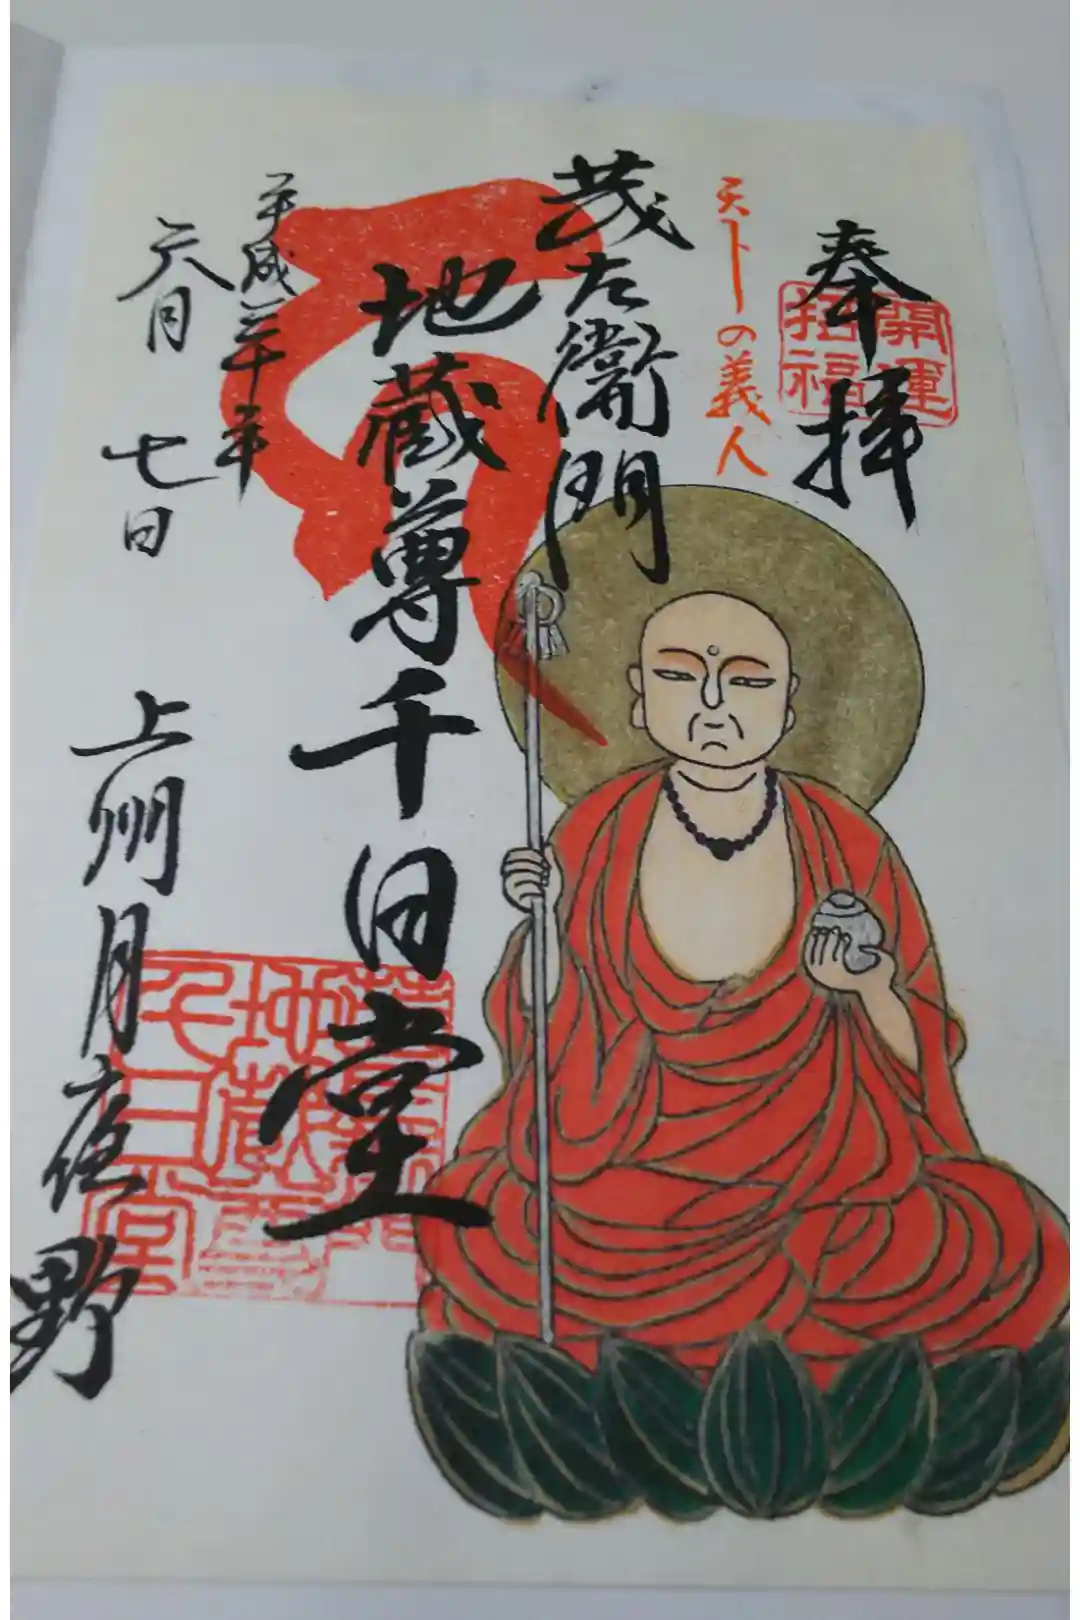 奉拝
開運
招福
天下の義人
茂左衛門
地蔵尊千日堂
平成三十年
六月
七日
上州月夜野
地蔵尊
千日堂